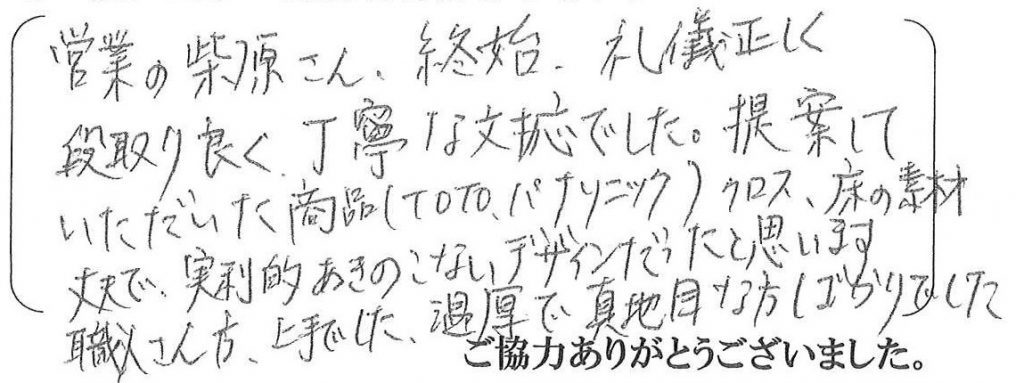 営業の柴原さん、終始、礼儀正しく
段取り良く、丁寧な対応でした。提案して
いただいた商品(TOTO、パナソニック)クロス、床の素材
丈夫で、実利的あきのこないデザインだったと思います
職人さん方、上手でした、温厚で真地目な方ばかりでした
ご協力ありがとうございました。